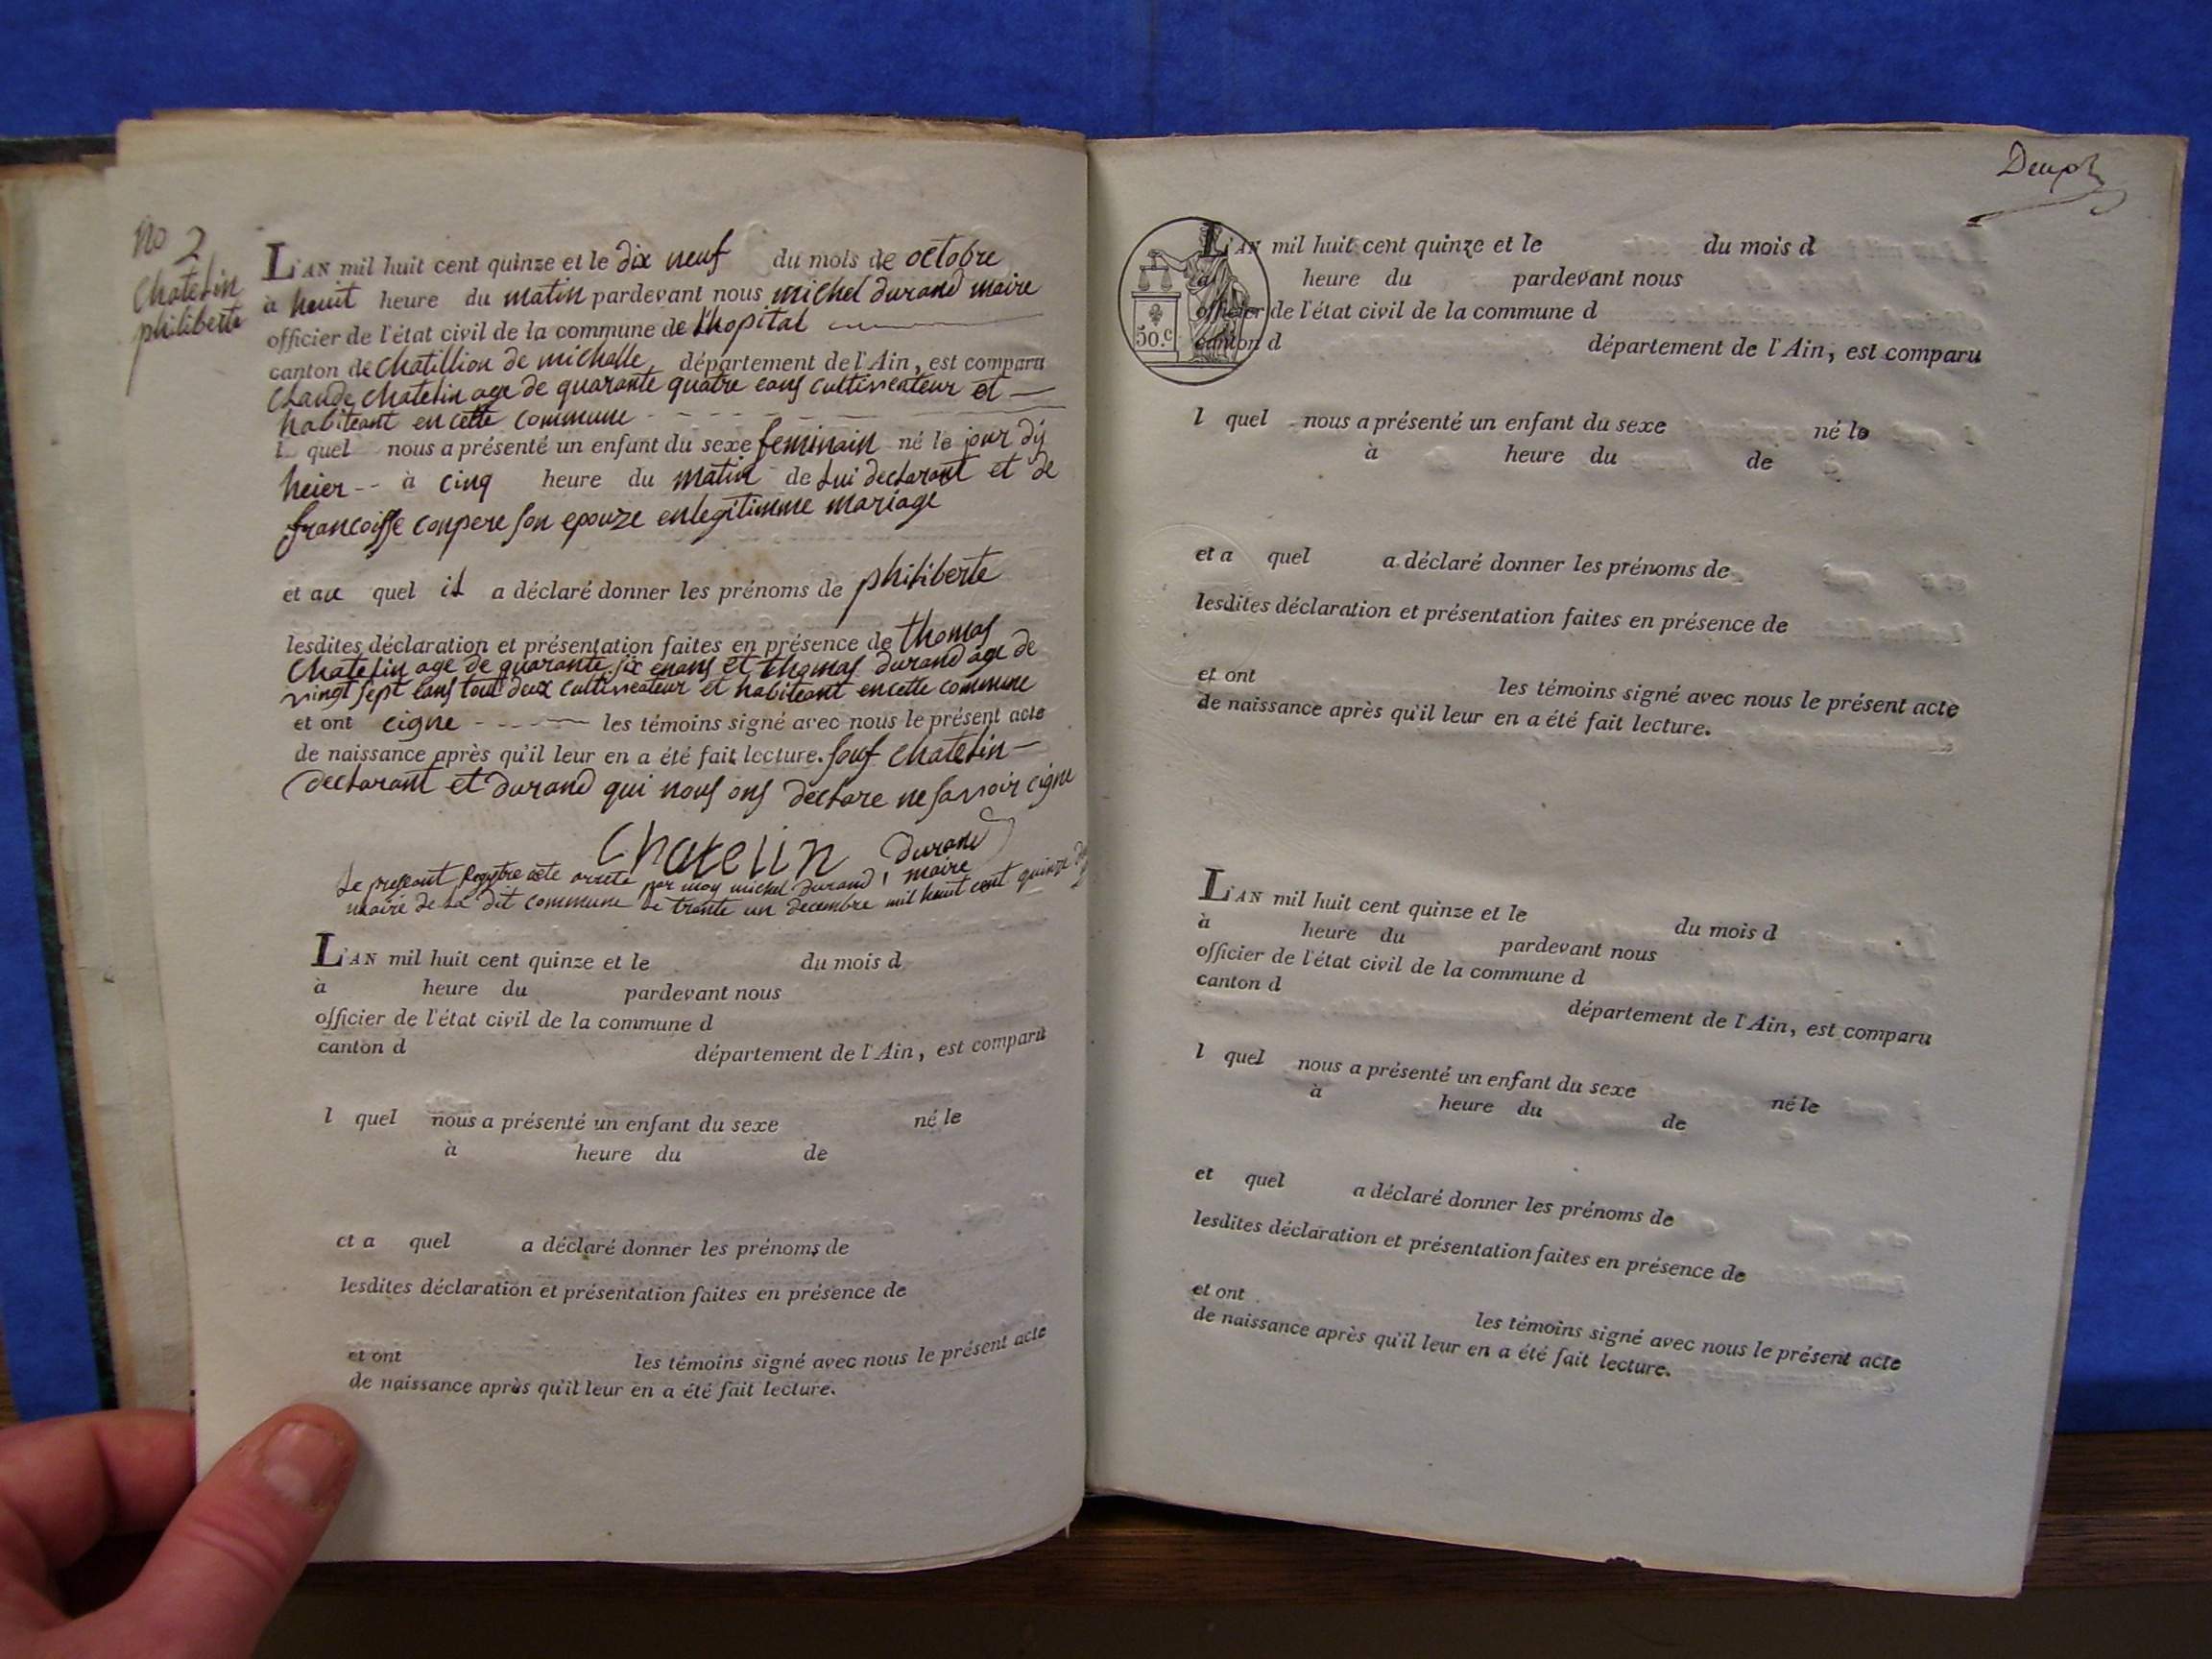 no 2
Chatelin
philiberte
L'AN mil huit cent quinze et le dix neuf du mois de octobre
à heuit heure du matin pardevant nous michel durand maire
officier de l'état civil de la commune de L'hopital
canton de chatillion de michalle département de l'Ain, est comparu
Claude chatelin age de quarante quatre eans cultiveateur et
habiteant en cette commune
l quel nous a présenté un enfant du sexe feminain né le jour dij
heier -- à cinq heure du matin de Lui declarant et de
francoisse conpere son epouze enlegitimme mariage
et au quel il a déclaré donner les prénoms de philiberte
lesdites déclaration et présentation faites en présence de thomas
Chatelin age de quarante six enans et thomas durand age de
vingt sept eans tout deux cultiveateur et habiteant encette commune
et ont cigne les témoins signé avec nous le présent acte
de naissance après qu'il leur en a été fait lecture. souf chatelin
declarant et durand qui nous ons declare ne savoir cigne
Chatelin durand
maire
Le presant Registre aete arrete par moy michel durand
maire de La dit commune Le trante un decembre mil heuit cent quinze
L'AN mil huit cent quinze et le du mois d
à heure du pardevant nous
officier de l'état civil de la commune d
canton d département de l'Ain, est comparu
l quel nous a présenté un enfant du sexe né le
à heure du de
et a quel a déclaré donner les prénoms de
lesdites déclaration et présentation faites en présence de
et ont les témoins signé avec nous le présent acte
de naissance après qu'il leur en a été fait lecture.
50.c
L'AN mil huit cent quinze et le du mois d
à heure du pardevant nous
officier de l'état civil de la commune d
canton d département de l'Ain, est comparu
l quel nous a présenté un enfant du sexe né le
à heure du de
et a quel a déclaré donner les prénoms de
lesdites déclaration et présentation faites en présence de
et ont les témoins signé avec nous le présent acte
de naissance après qu'il leur en a été fait lecture.
L'AN mil huit cent quinze et le du mois d
à heure du pardevant nous
officier de l'état civil de la commune d
canton d département de l'Ain, est comparu
l quel nous a présenté un enfant du sexe né le
à heure du de
et quel a déclaré donner les prénoms de
lesdites déclaration et présentation faites en présence de
et ont les témoins signé avec nous le présent acte
de naissance après qu'il leur en a été fait lecture.